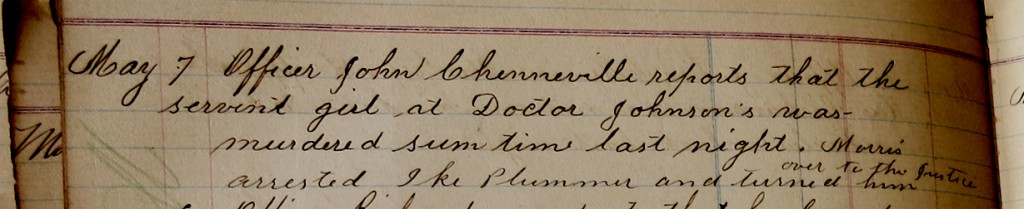 May 7 Officer John Chenneville reports that the
servent girl at Doctor Johnson's was-
murdered sum time last night. Morris
arrested Ike Plummer and turned him
over to the Justice